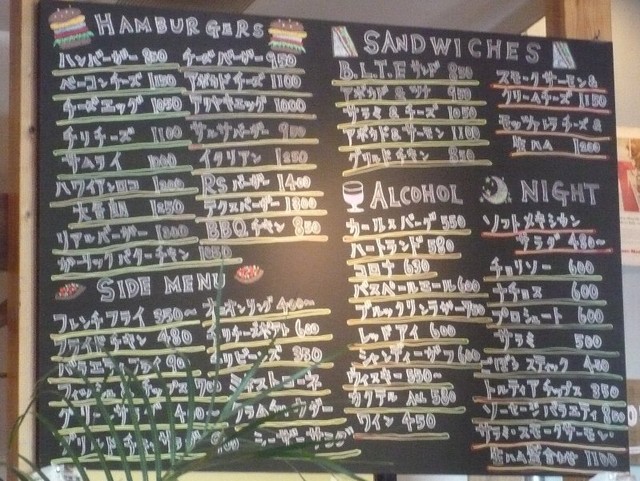 HAMBURGERS
ハンバーガー 850
ベーコンチーズ 1150
チーズエッグ 1050
チリチーズ 1100
サムライ
ハワイアンロコ
1250
リアルバーガー
ガーリックバターチキン 1050
チーズバーガー 950
アボカドチーズ 1100
テリヤキエッグ 1000
サルサバーガー 900
イタリアン 1250
R'S バーガー 1400
テクスバーガー 1300
BBQ チキン 850
SIDE MENU
フレンチフライ 350〜
フライドチキン 480
フィッシュ チップス 700
グリーンサラダ
オニオンリング 400〜
チリチーズポテト 600
チリビーンズ 350
ミネストローネ
クラムチャウダー
シーザーサラダ
SANDWICHES
B.L.T.E サンド 850
アボカド & ツナ 950
サラミ & チーズ 1050
アボカド & サーモン 1100
グリルドチキン 850
スモークサーモン &
クリームチーズ 1150
モッツァレラチーズ &
生ハム 1200
ALCOHOL
カールスバーグ 550
ハートランド 580
コロナ 630
バスペールエール 600
ブルックリンラガー 700
レッドアイ 600
シャンディーガフ 600
ウィスキー 550〜
カクテル ALL 580
ワイン 450
NIGHT
ソフトメキシカン
サラダ 480〜
チョリソー 600
ナチョス 600
プロシュート 600
サラミ 500
スティック
トルティアチップス 350
ソーセージバラエティ 800
サラミ・スモークサーモン・
生ハム盛合わせ 1100